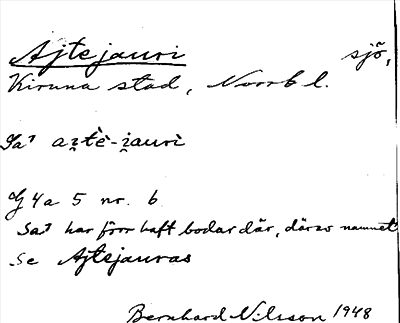 Ajtejauri sjö,
Kiruna stad, Norrb l.
ai̯tè-i̯auri
4a 5 nr. 6
har förr haft bodar där, därav namnet
Se Ajtejauras
Bernhard Nilsson 1948